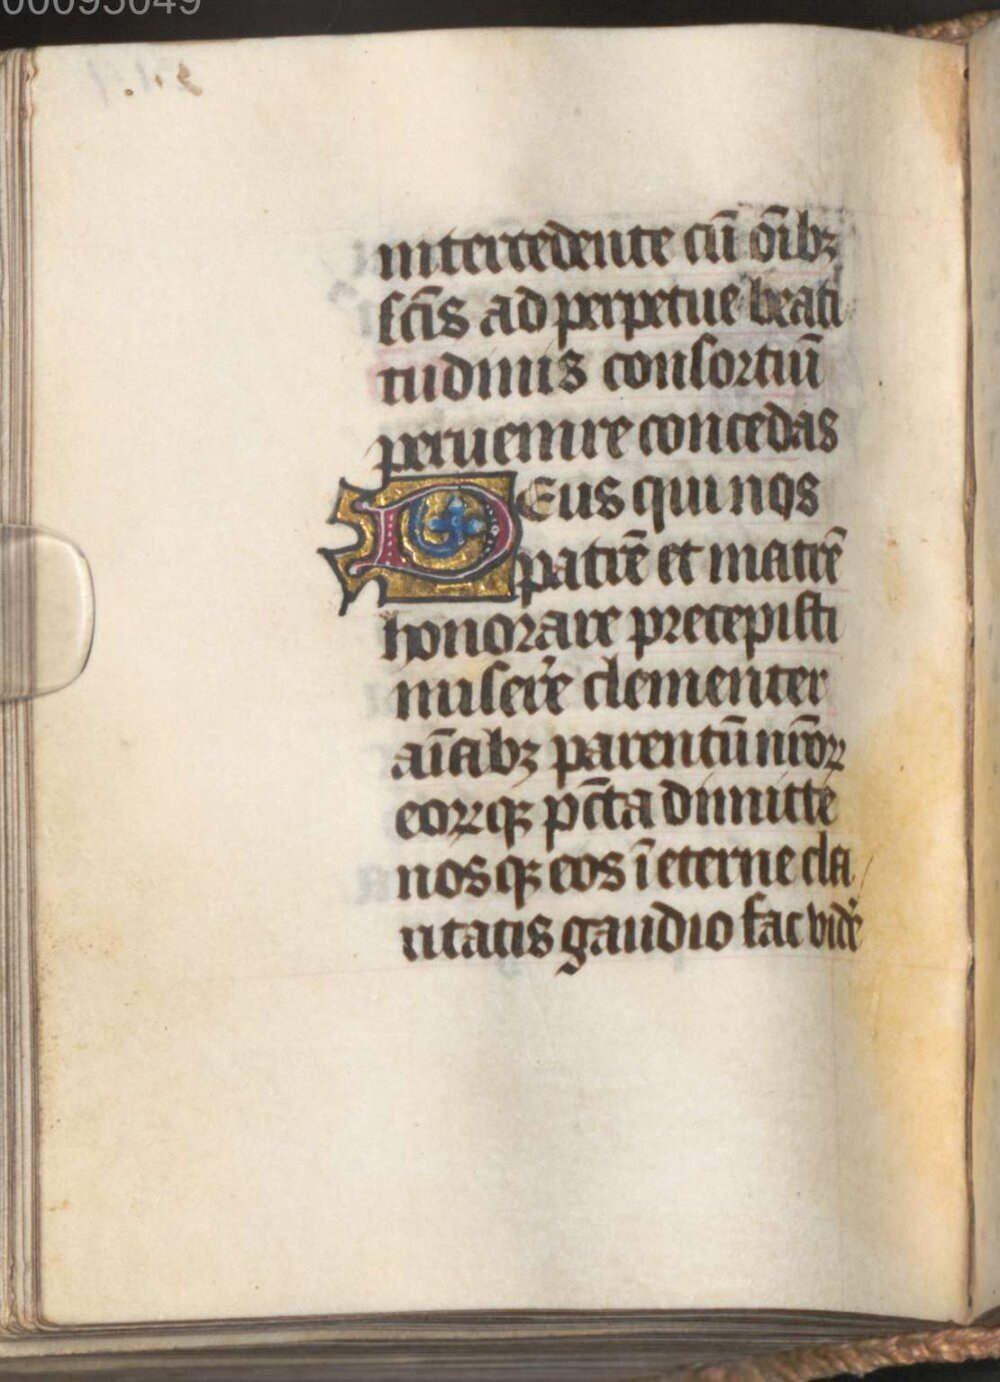 00095049
intercedente cū oībꝫ
sc̄is ad perpetue beati
tudinis consortiū
peruenire concedas
DEus qui nos
patrē et matrē
honorare precepisti
miserꝰe clementer
aīabꝫ parentū nr̄oꝝ
eoꝝqꝫ pc̄ta dimitte
nosqꝫ eos ī eterne cla
ritatis gaudio fac vidꝰe